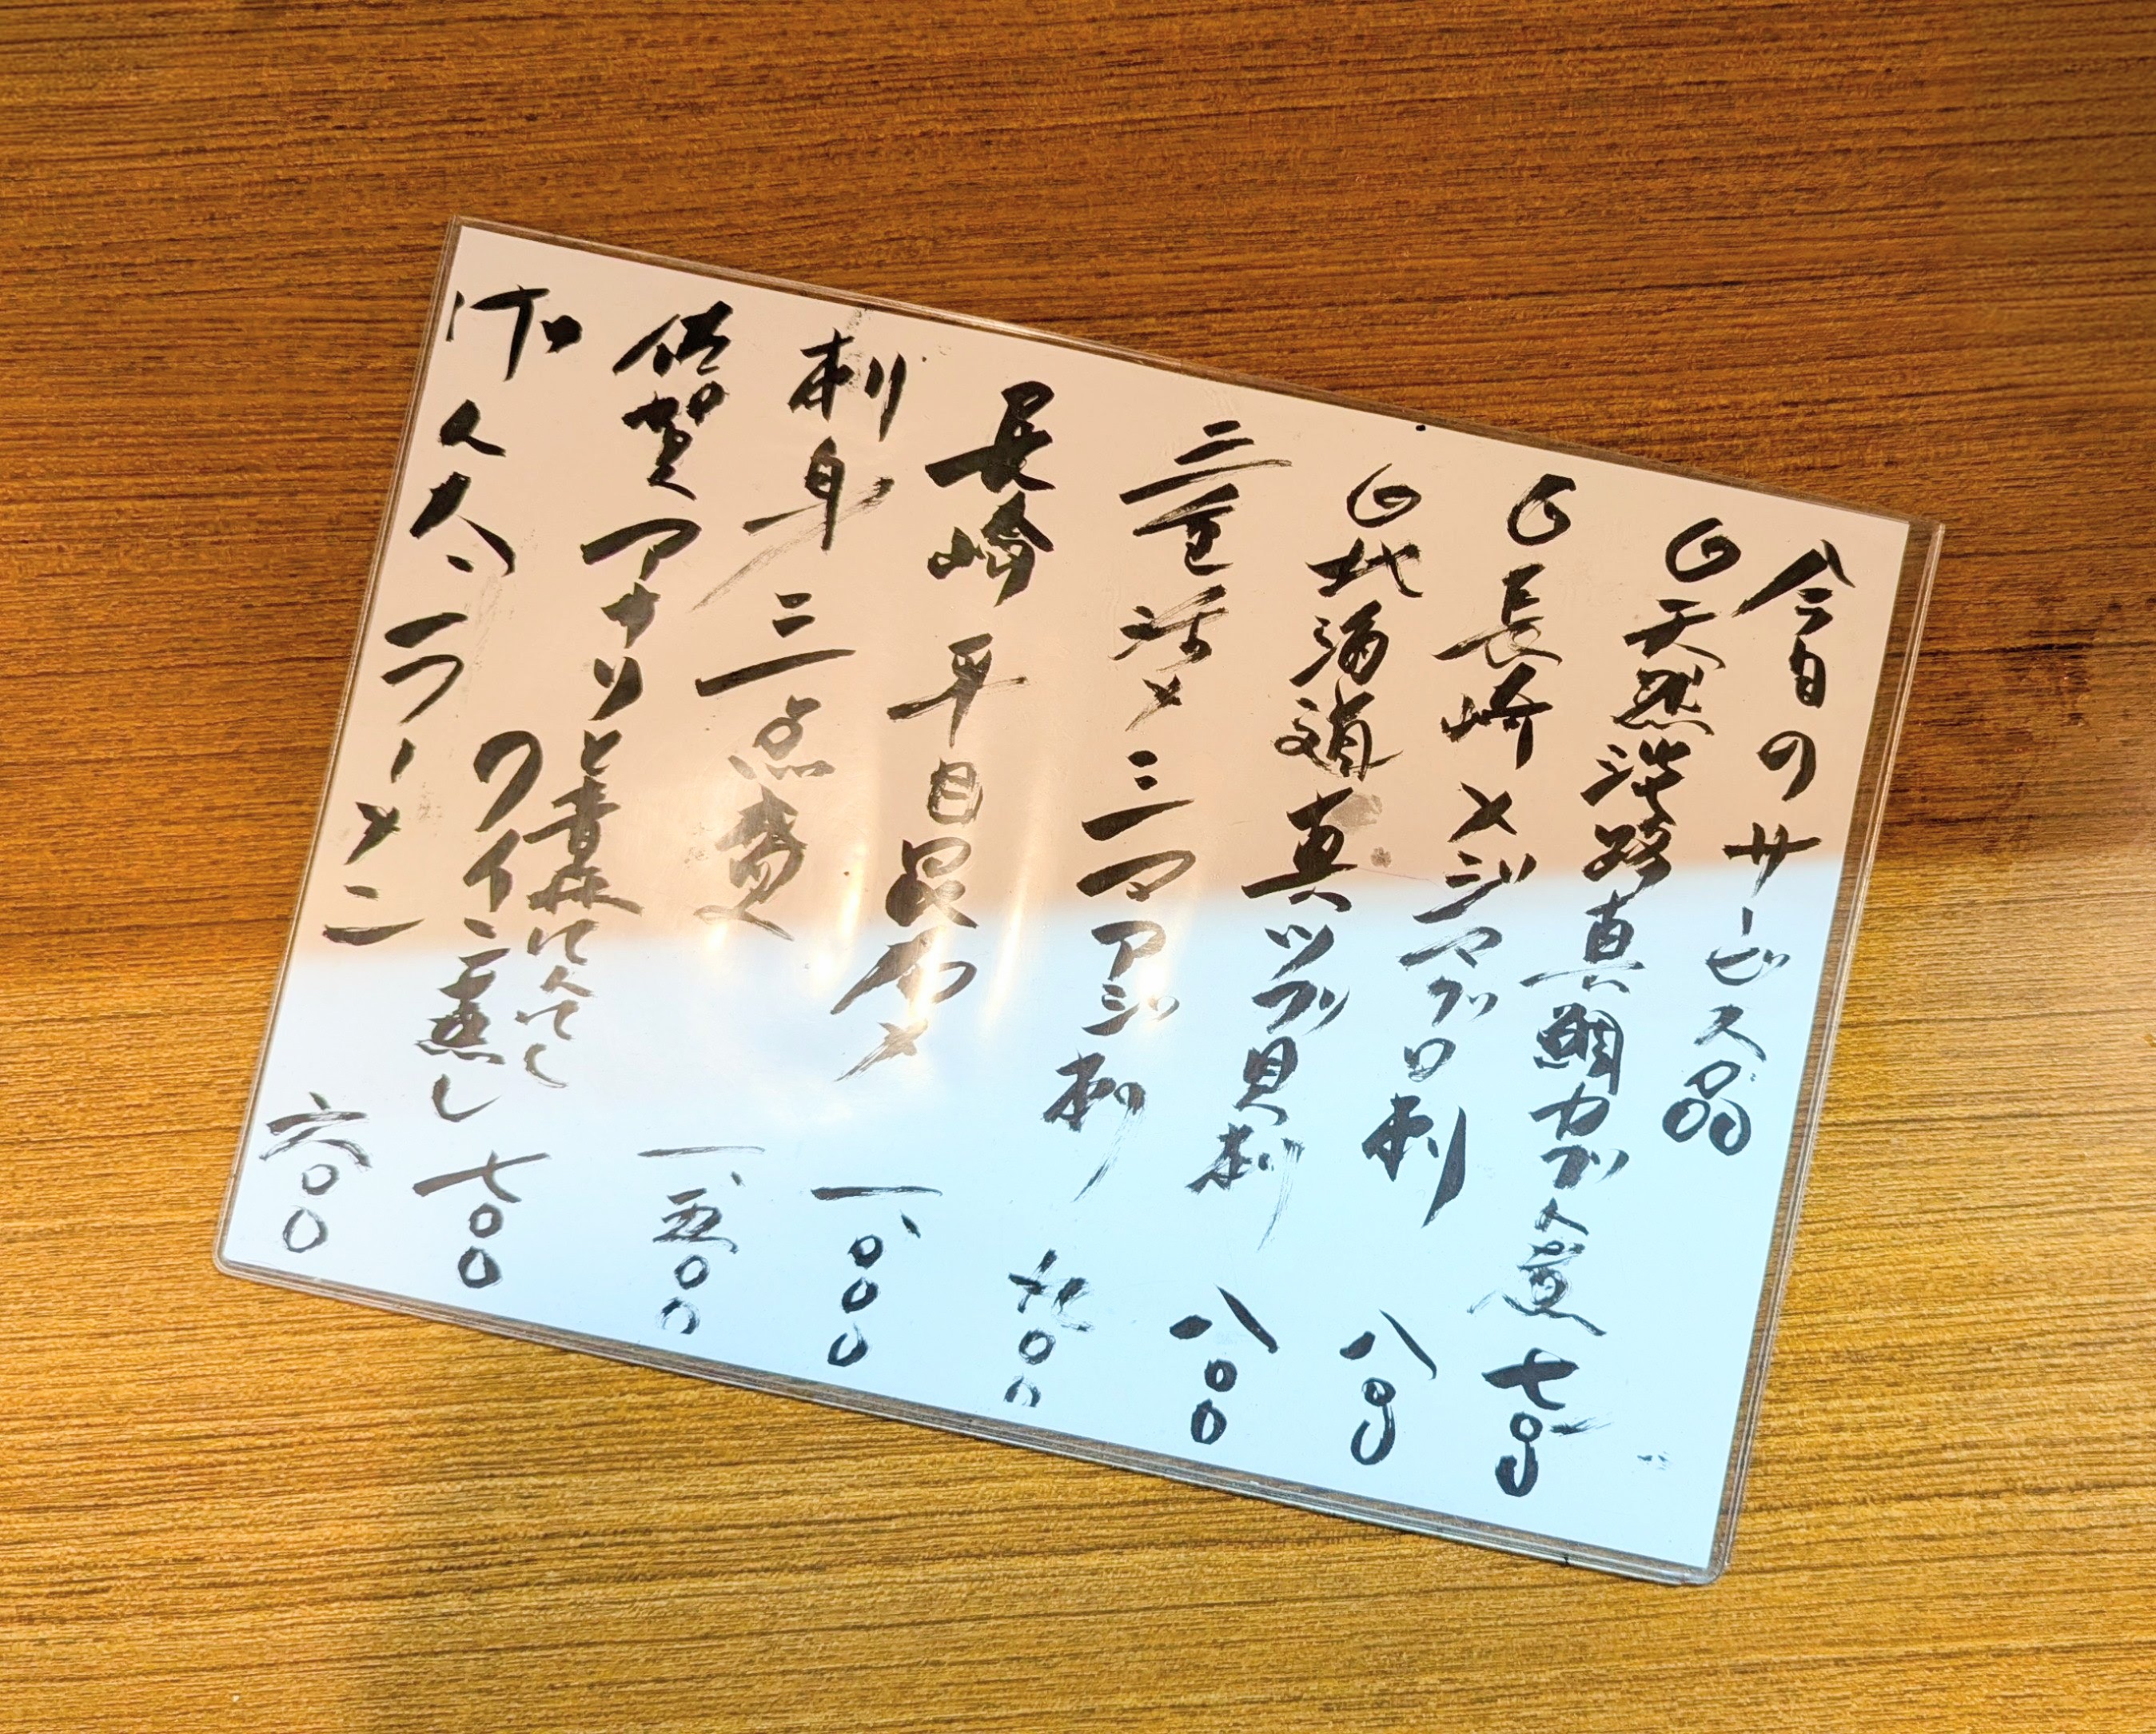 今日のサービス品
◎天然淡路真鯛カブト煮 七〇〇
◎長崎メジマグロ刺 八〇〇
◎北海道真ツブ貝刺 八〇〇
三重活〆シマアジ刺 九〇〇
長崎平目昆布〆 一、〇〇〇
刺身三点盛 一、五〇〇
佐賀アサリと青森にんにく
ワイン蒸し 七〇〇
ラーメン 六〇〇